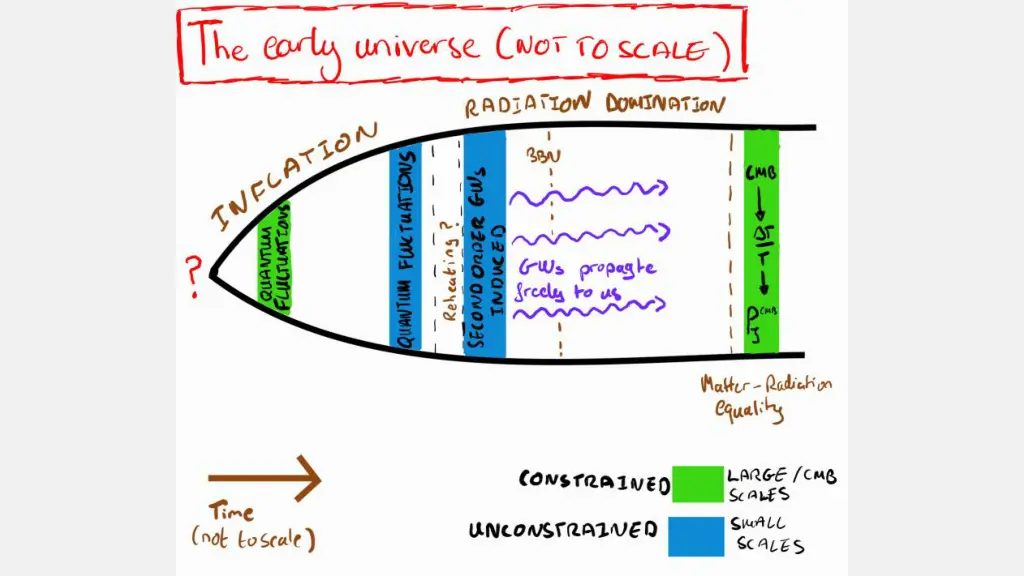 The early universe (NOT TO SCALE)
RADIATION DOMINATION
INFLATION
BBN
QUANTUM
FLUCTUATIONS
QUANTUM FLUCTUATIONS
Reheating?
SECOND ORDER GWs
INDUCED
GWs propagte
freely to us
?
CMB
CMB
Matter-Radiation
equality
Time
(not to scale)
CONSTRAINED
LARGE/CMB
SCALES
UNCONSTRAINED
SMALL
SCALES